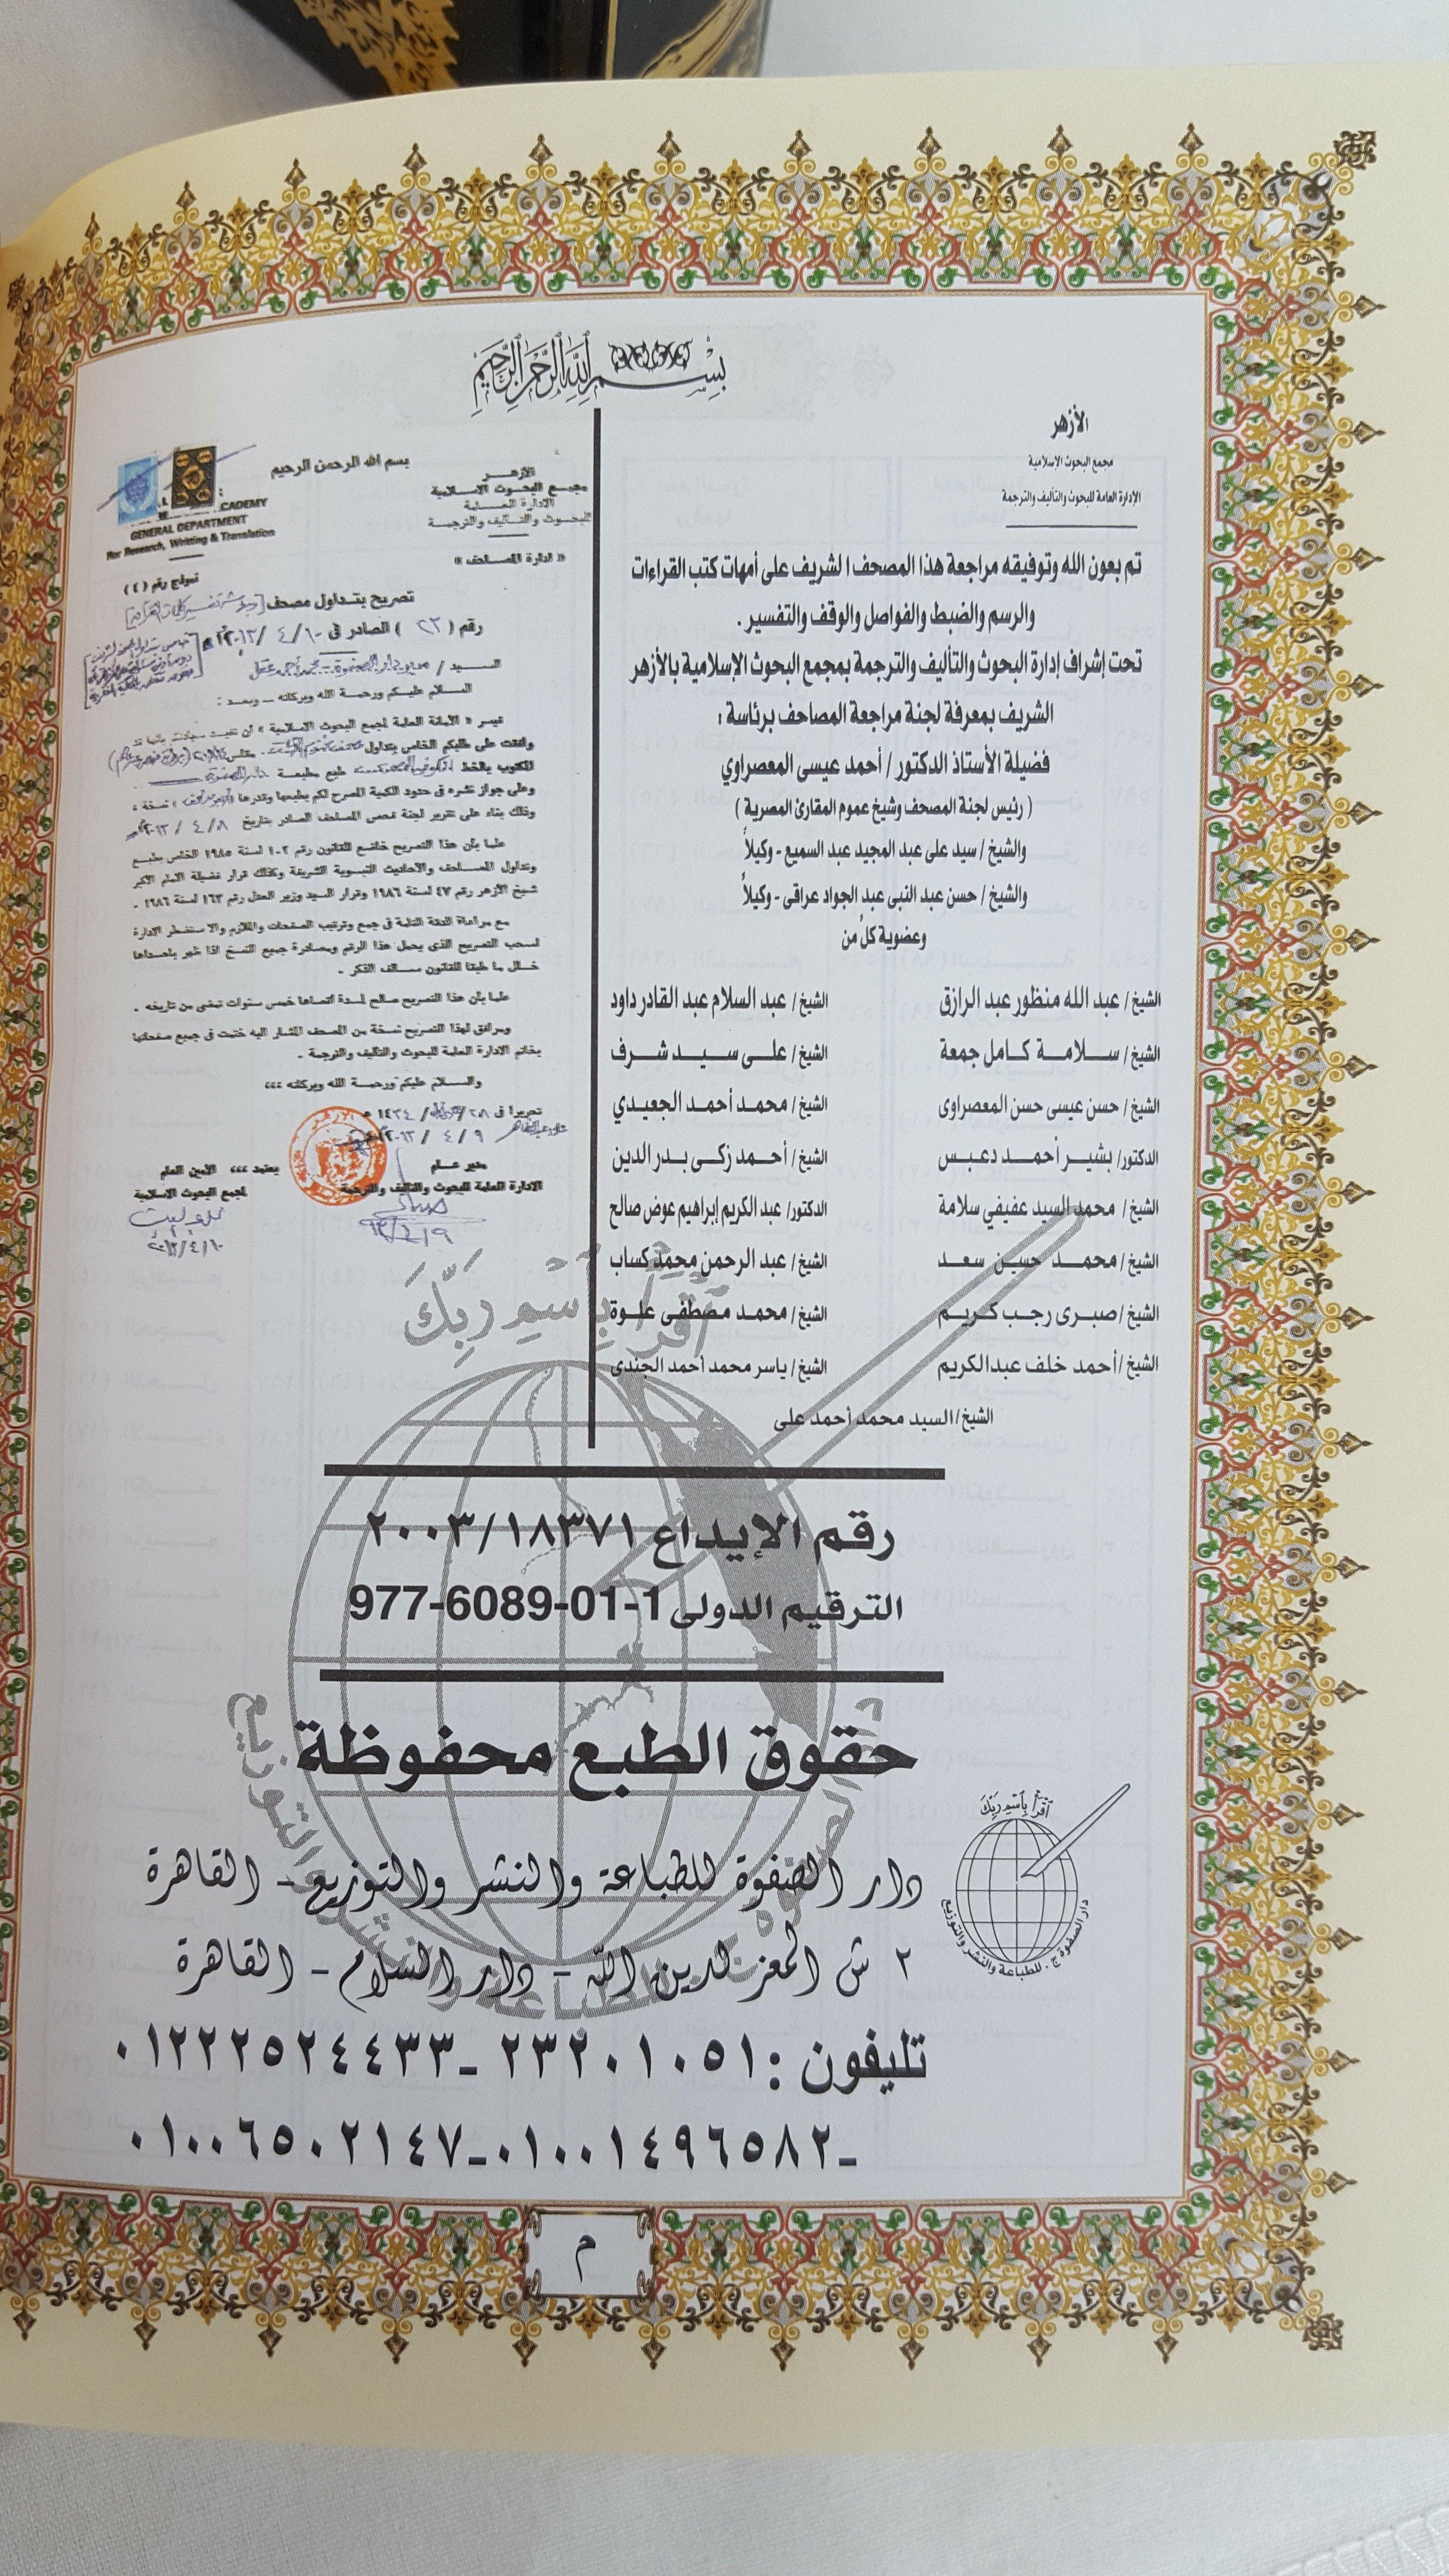 بِسْمِ اللَّهِ الرَّحْمَٰنِ الرَّحِيمِ
الأزهر
مجمع البحوث الإسلامية
الإدارة العامة للبحوث والتأليف والترجمة
تم بعون الله وتوفيقه مراجعة هذا المصحف الشريف على أمهات كتب القراءات
والرسم والضبط والفواصل والوقف والتفسير .
تحت إشراف إدارة البحوث والتأليف والترجمة بمجمع البحوث الإسلامية بالأزهر
الشريف بمعرفة لجنة مراجعة المصاحف برئاسة :
فضيلة الأستاذ الدكتور / أحمد عيسى المعصراوي
( رئيس لجنة المصحف وشيخ عموم المقارئ المصرية )
والشيخ / سيد على عبد المجيد عبد السميع - وكيلاً
والشيخ / حسن عبد النبى عبد الجواد عراقى - وكيلاً
وعضوية كلٌ من
الشيخ / عبد الله منظور عبد الرازق الشيخ / عبد السلام عبد القادر داود
الشيخ / سلامة كامل جمعة الشيخ / على سيد شرف
الشيخ / حسن عيسى حسن المعصراوى الشيخ / محمد أحمد الجعيدي
الدكتور/ بشير أحمد دعبس الشيخ / أحمد زكى بدر الدين
الشيخ / محمد السيد عفيفي سلامة الدكتور/ عبد الكريم إبراهيم عوض صالح
الشيخ / محمد حسين سعد الشيخ / عبد الرحمن محمد كساب
الشيخ / صبرى رجب كريم الشيخ / محمد مصطفى علوة
الشيخ /أحمد خلف عبدالكريم الشيخ / ياسر محمد أحمد الجندى
الشيخ/السيد محمد أحمد على
بسم الله الرحمن الرحيم
الأزهر
مجمع البحوث الاسلامية
الادارة العامة
للبحوث والتأليف والترجمة
« ادارة المصاحف »
CADEMY
GENERAL DEPARTMENT
For Research, Writting & Translation
نموذج رقم ( ٤ )
تصريح بتداول مصحف
رقم ( ٢٣ ) الصادر فى ١٠ / ٤ / ٢٠١٣م
السيد / مدير دار الصفوة - محمد أحمد عقل
السلام عليكم ورحمة الله وبركاته — وبعد :
تسر « الأمانة العامة لمجمع البحوث الاسلامية » أن تفيد سيادتكم بأنها قد
وافقت على طلبكم الخاص بتداول
المكتوب بالخط طبع مطبعة
وعلى جواز نشره فى حدود الكمية المصرح لكم بطبعها وقدرها نسخة ،
وذلك بناء على تقرير لجنة فحص المصاحف الصادر بتاريخ ٨ / ٤ / ٢٠١٣م
علما بأن هذا التصريح خاضع للقانون رقم ١٠٢ لسنة ١٩٨٥ الخاص بطبع
وتداول المصاحف والأحاديث النبوية الشريفة وكذلك قرار فضيلة الامام الأكبر
شيخ الأزهر رقم ٤٧ لسنة ١٩٨٦ وقرار السيد وزير العدل رقم ١٦٣ لسنة ١٩٨٦ .
مع مراعاة الدقة التامة فى جمع وترتيب الصفحات والملازم والا ستضطر الادارة
لسحب التصريح الذى يحمل هذا الرقم ومصادرة جميع النسخ اذا ظهر باحداها
خلل ما طبقا للقانون سالف الذكر .
علما بأن هذا التصريح صالح لمدة أقصاها خمس سنوات تمضى من تاريخه .
ومرافق لهذا التصريح نسخة من المصحف المشار اليه ختمت فى جميع صفحاتها
بخاتم الادارة العامة للبحوث والتأليف والترجمة .
والسلام عليكم ورحمة الله وبركاته ،،،
تحريرا فى ٢٨ / / ١٤٣٤ هـ
٩ / ٤ / ٢٠١٣م
مدير عام
الادارة العامة للبحوث والتأليف والترجمة
يعتمد ،،، الأمين العام
لمجمع البحوث الاسلامية
٢٠١٣/٤/١٠
ٱقْرَأْ بِٱسْمِ رَبِّكَ
رقم الإيداع ٢٠٠٣/١٨٣٧١
الترقيم الدولى 977-6089-01-1
حقوق الطبع محفوظة
دار الصفوة للطباعة والنشر والتوزيع - القاهرة
٢ ش المعز لدين الله - دار السلام - القاهرة
تليفون : ٢٣٢٠١٠٥١ - ٠١٢٢٢٥٢٤٤٣٣
- ٠١٠٠١٤٩٦٥٨٢ - ٠١٠٠٦٥٠٢١٤٧
ٱقْرَأْ بِٱسْمِ رَبِّكَ
دار الصفوة ج . للطباعة والنشر والتوزيع
م